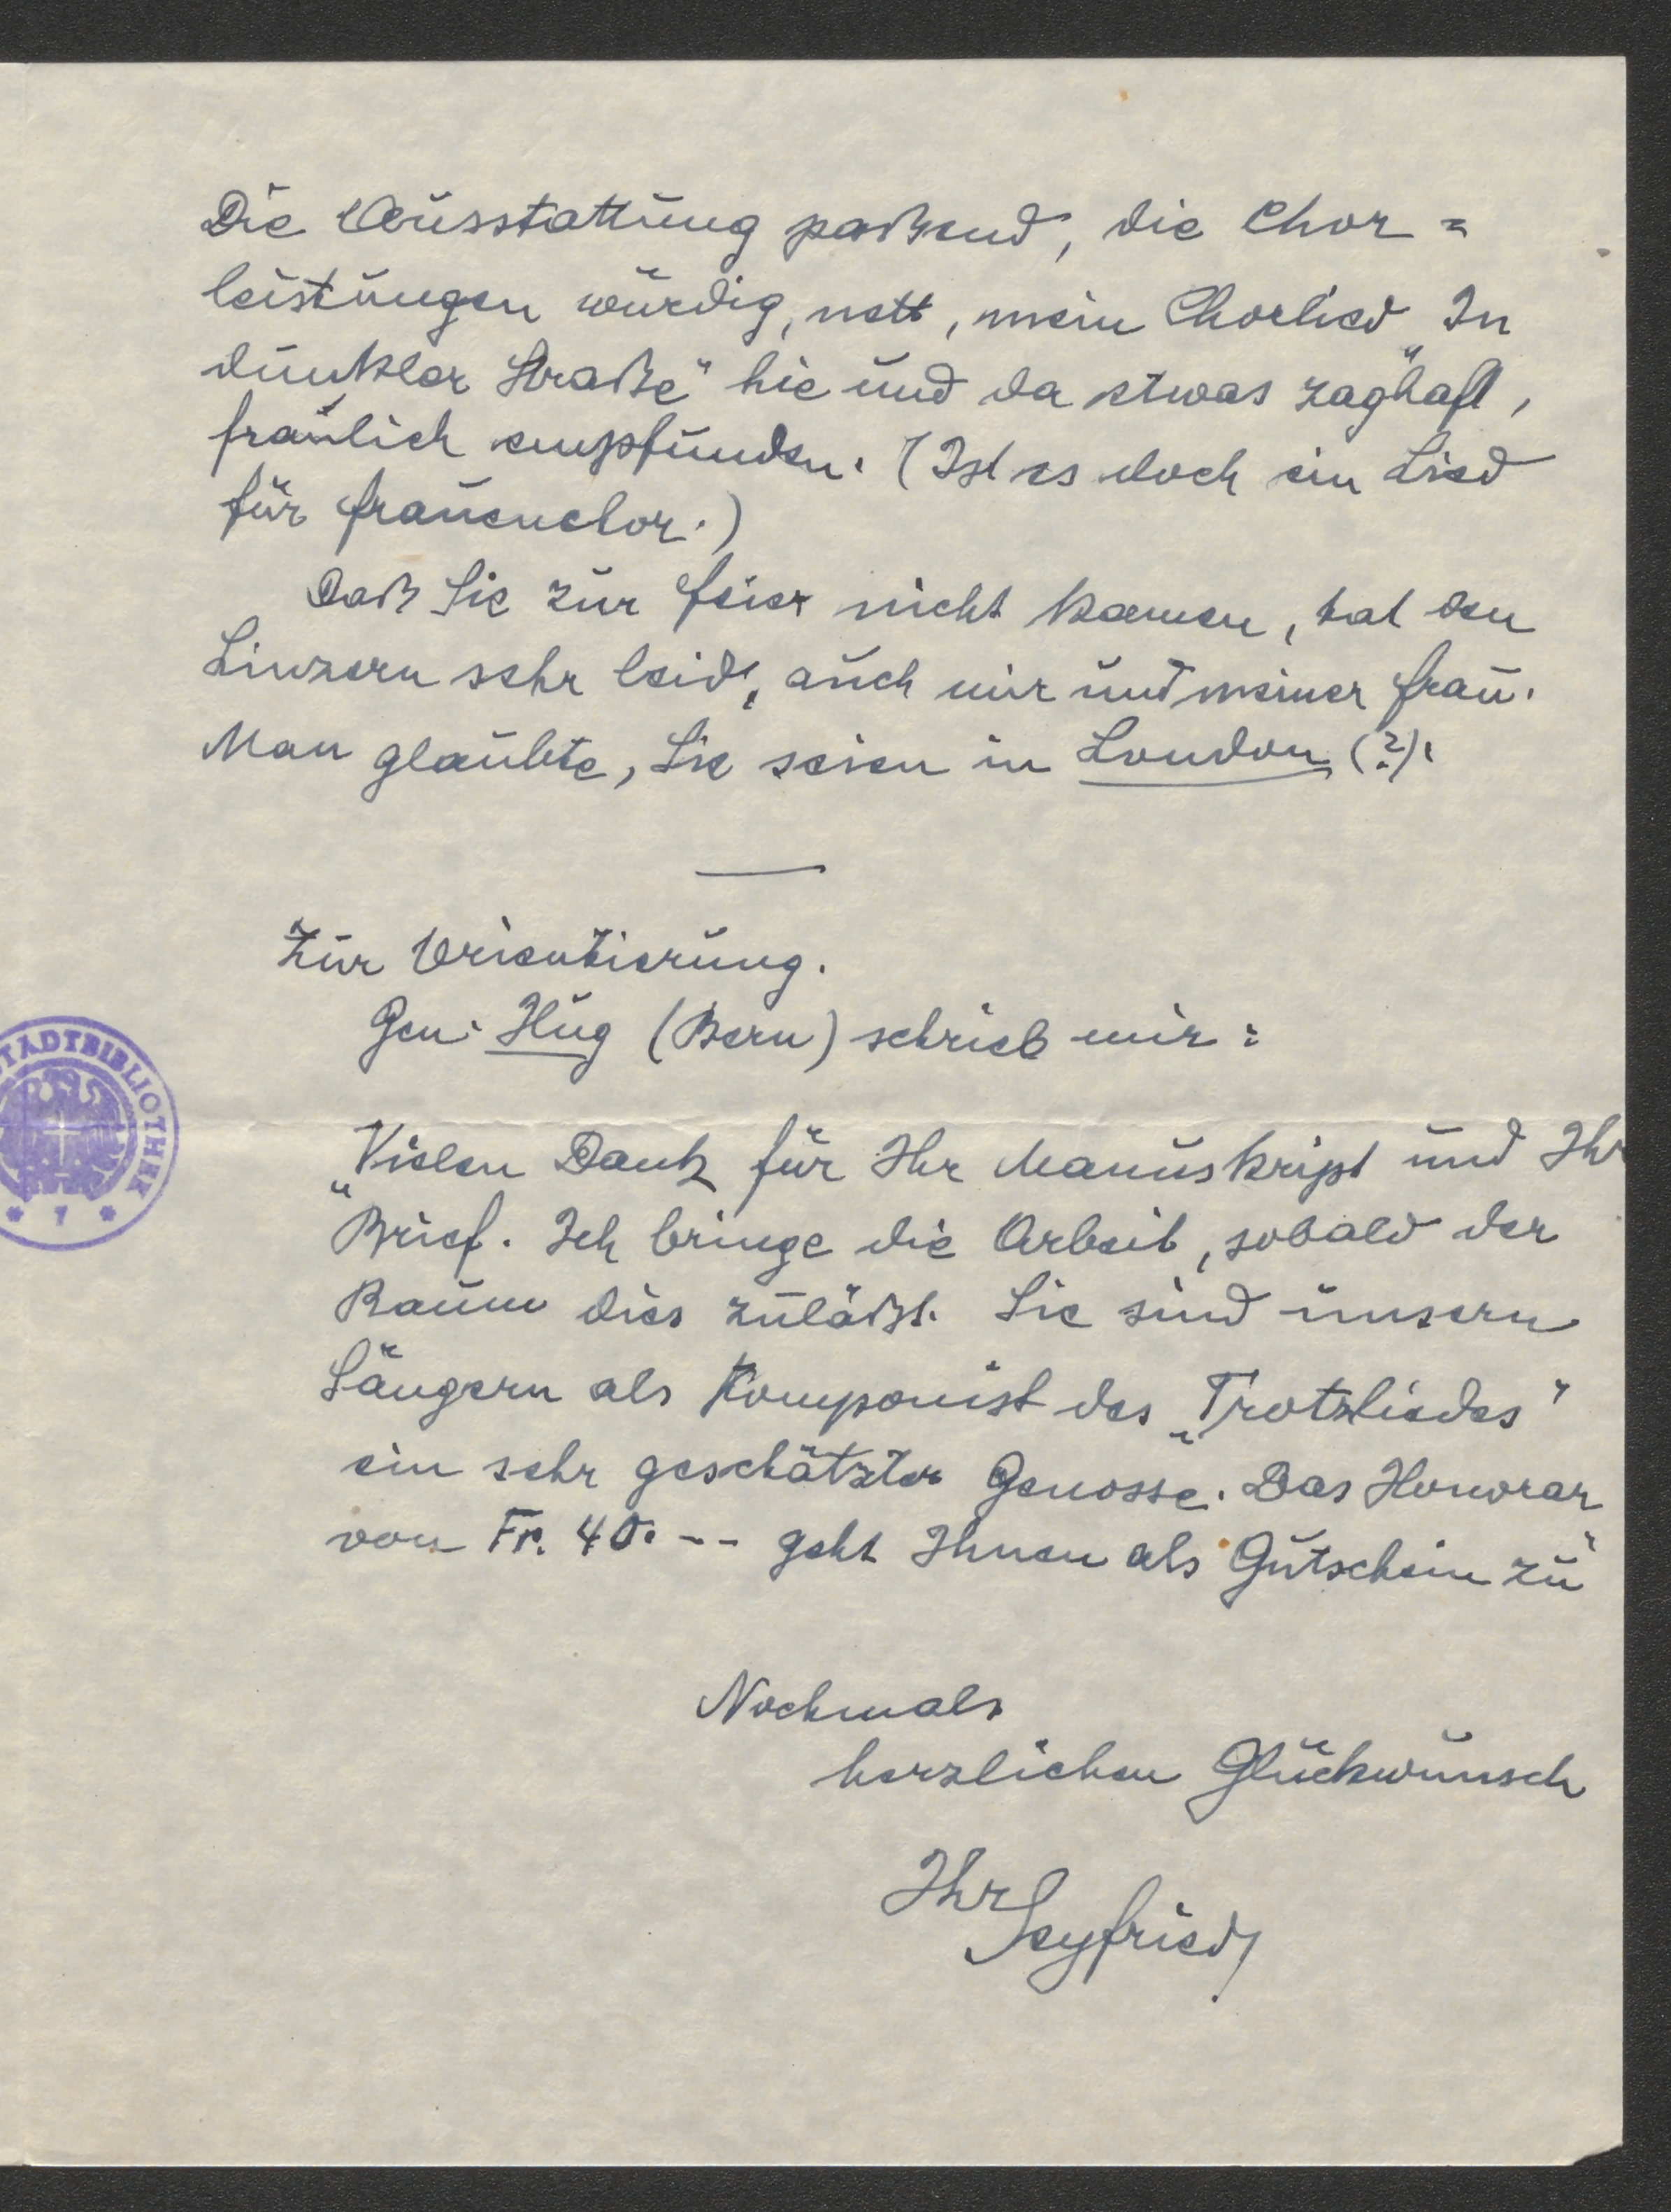 Die Ausstattung paßend, die Chor=
leistungen würdig, nett, mein Chorlied „In
dunkler Straße" hie und da etwas zaghaft,
fraulich empfunden. (Ist es doch ein Lied
für Frauenchor.)
Daß Sie zur Feier nicht kamen, tat den
Linzern sehr leid, auch mir und meiner Frau.
Man glaubte, Sie seien in London (?).
Zur Orientierung.
Gen. Hug (Bern) schrieb mir:
„Vielen Dank für Ihr Manuskript und Ihr
Brief. Ich bringe die Arbeit, sobald der
Raum dies zuläßt. Sie sind unsern
Sängern als Komponist des „Trotzliedes"
ein sehr geschätzter Genosse. Das Honorar
von Fr. 40.-- geht Ihnen als Gutschein zu"
Nochmals
herzlichen Glückwunsch
Ihr
Seyfried
STADTBIBLIOTHEK
* 7 *